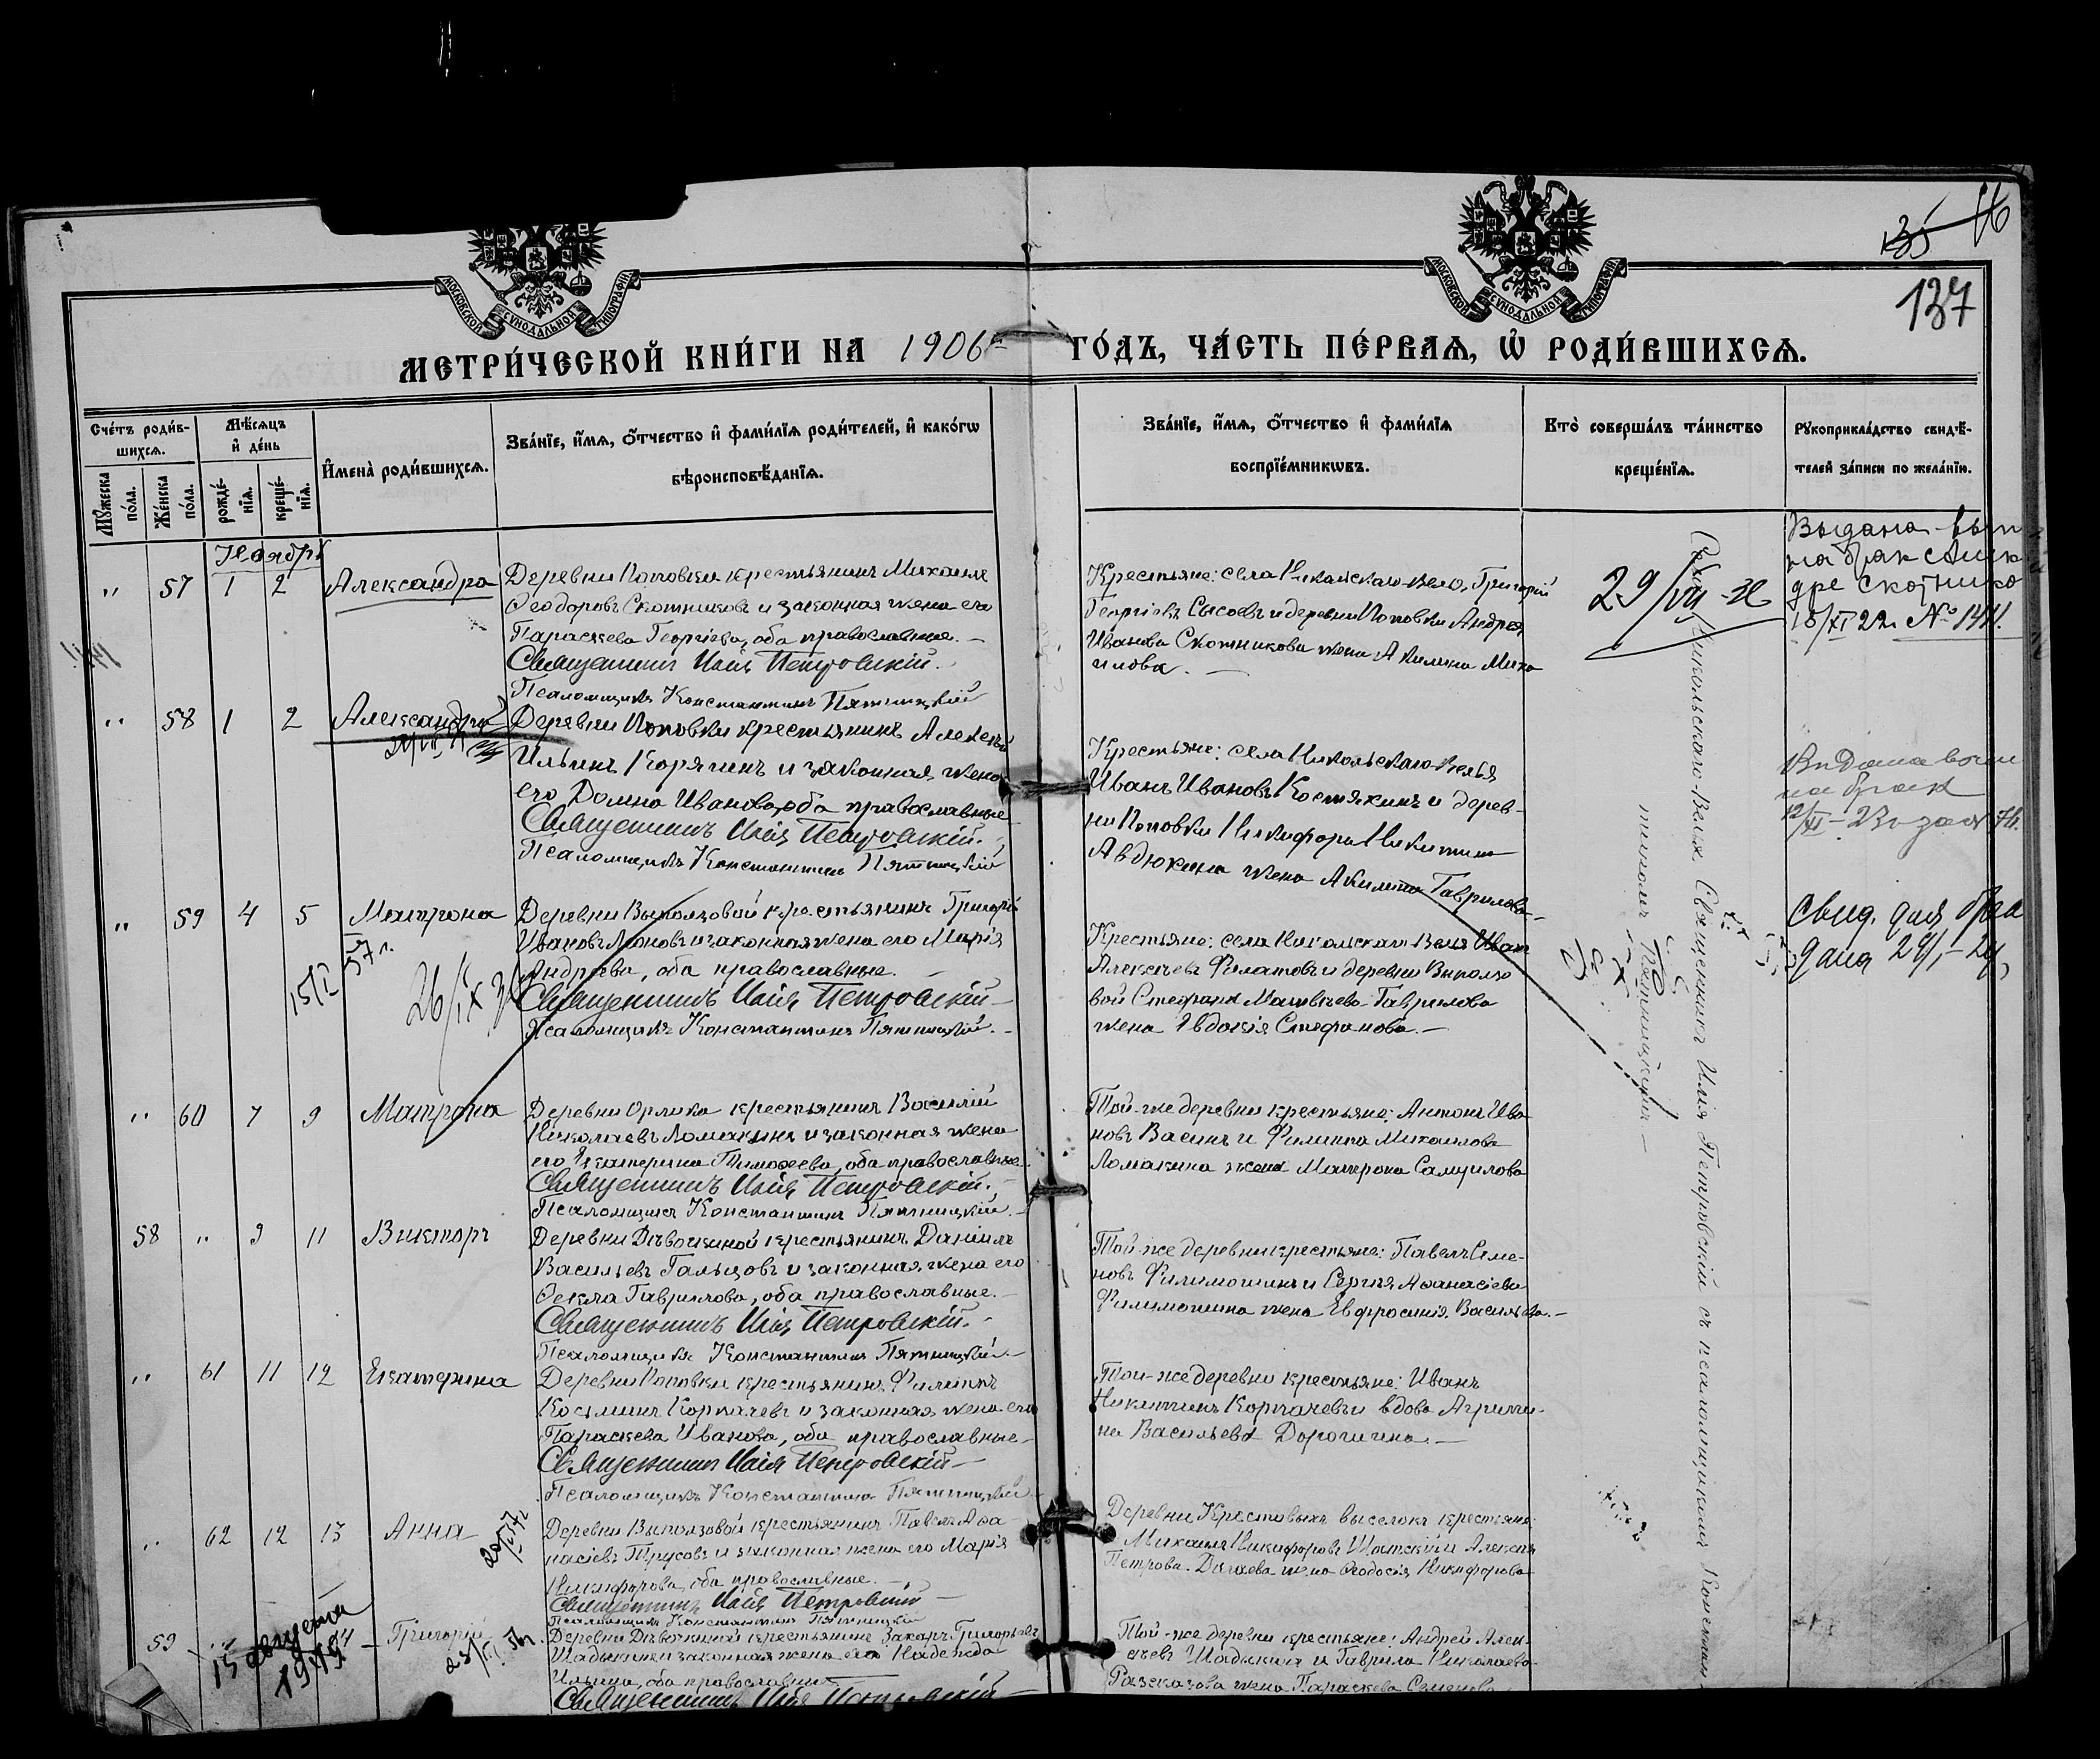 135 66
137
МОСКОВСКОЙ СѴНОДАЛЬНОЙ ТИПОГРАФІИ
МОСКОВСКОЙ СѴНОДАЛЬНОЙ ТИПОГРАФІИ
МЕТРИ́ЧЕСКОЙ КНИ́ГИ НА 1906 ГО́ДЪ, ЧА́СТЬ ПЕ́РВАѦ, Ѡ҆ РОДИ́ВШИХСѦ.
Сче́тъ роди́в-
шихсѧ.
Мꙋ́жеска по́ла.
Же́нска по́ла.
Мѣ́сѧцъ
и҆ де́нь
рожде́-
нїѧ.
креще́-
нїѧ.
И҆мена̀ роди́вшихсѧ.
Зва́нїе, и҆́мѧ, ѻ҆́тчество и҆ фами́лїѧ роди́телей, и҆ како́гѡ
вѣроисповѣ́данїѧ.
Зва́нїе, и҆́мѧ, ѻ҆́тчество и҆ фами́лїѧ
воспрїе́мникѡвъ.
Кто̀ соверша́лъ та́инство
креще́нїѧ.
Рꙋкоприкла́дство свидѣ́-
телей за́писи по жела́нїю.
Ноября
" 57 1 2 Александра
Деревни Поповки крестьянинъ Михаилъ
Ѳеодоровъ Скотниковъ и законная жена его
Параскева Георгіева, оба православные.
Священникъ Илія Петровскій.
Псаломщикъ Константинъ Пятницкій
Крестьяне: села Никольскаго-Вело, Григорій
Георгіевъ Сысоевъ и деревни Поповки Андрея
Иванова Скотникова жена Акилина Миха
илова.
29/VII
Выдана вып
на брак
дре Скотнико
18/XI 22 № 1411.
" 58 1 2 Александра
Деревни Поповки крестьянинъ Алексѣй
Ильинъ Корягинъ и законная жена
его Домна Иванова, оба православные
Священникъ Илія Петровскій.
Псаломщикъ Константинъ Пятницкій
Крестьяне: села Никольскаго-Велья
Иванъ Ивановъ Костякинъ и дерев-
ни Поповки Никифора Никитина
Авдюкина жена Акилина Гаврилова
на брак
" 59 4 5 Матрона
15/I 57 г.
26/IX
Деревни Выползовой крестьянинъ Григорій
Ивановъ Леоновъ и законная жена его Марія
Андреева, оба православные.
Священникъ Илія Петровскій
Псаломщикъ Константинъ Пятницкій.
Крестьяне: села Никольскаго-Велья Иванъ
Алексѣевъ Филатовъ и деревни Выползо
вой Стефана Матвѣева Гаврилова
жена Евдокія Стефанова.
Свид. для бра
дана
" 60 7 9 Матрона
Деревни Орлика крестьянинъ Василій
Николаевъ Ломакинъ и законная жена
его Екатерина Тимоѳеева, оба православные.
Священникъ Илія Петровскій.
Псаломщикъ Константинъ Пятницкій.
Той-же деревни крестьяне: Антонъ Ива
новъ Васинъ и Филиппа Михаилова
Ломакина жена Матрона Самуилова
58 " 9 11 Викторъ
Деревни Дѣвочкиной крестьянинъ Даніилъ
Васильевъ Гальцовъ и законная жена его
Ѳекла Гаврилова, оба православные.
Священникъ Илія Петровскій.
Псаломщикъ Константинъ Пятницкій.
Той-же деревни крестьяне: Павелъ Семе-
новъ Филимошинъ и Сергѣя Аѳанасіева
Филимошина жена Евфросинія Васильева.
" 61 11 12 Екатерина
Деревни Поповки крестьянинъ Филиппъ
Косьминъ Корпачевъ и законная жена его
Параскева Иванова, оба православные
Священникъ Илія Петровскій
Псаломщикъ Константинъ Пятницкій
Той-же деревни крестьяне: Иванъ
Никитинъ Корпачевъ и вдова Агриппи-
на Васильева Дорогигина.
" 62 12 13 Анна
Деревни Выползовой крестьянинъ Павелъ Аѳа-
насіевъ Трусовъ и законная жена его Марія
Никифорова, оба православные.
Священникъ Илія Петровскій
Псаломщикъ Константинъ Пятницкій
Деревни Крестовыхъ выселокъ крестьяне:
Михаилъ Никифоровъ Шатскій и Алексѣя
Петрова Догаева жена Ѳеодосія Никифорова
59 " Григорій
15 августа
Деревни Дѣвочкиной крестьянинъ Захаръ Григорьевъ
Шадыкинъ и законная жена его Надежда
Ильина, оба православные
Священникъ Илія Петровскій
Той-же деревни крестьяне: Андрей Алек-
сѣевъ Шадыкинъ и Гаврила Николаева
Разсказова жена Параскева Семенова
Села Никольскаго-Велья Священникъ Илія Петровскій съ псаломщикомъ Константи
тиномъ Пятницкимъ